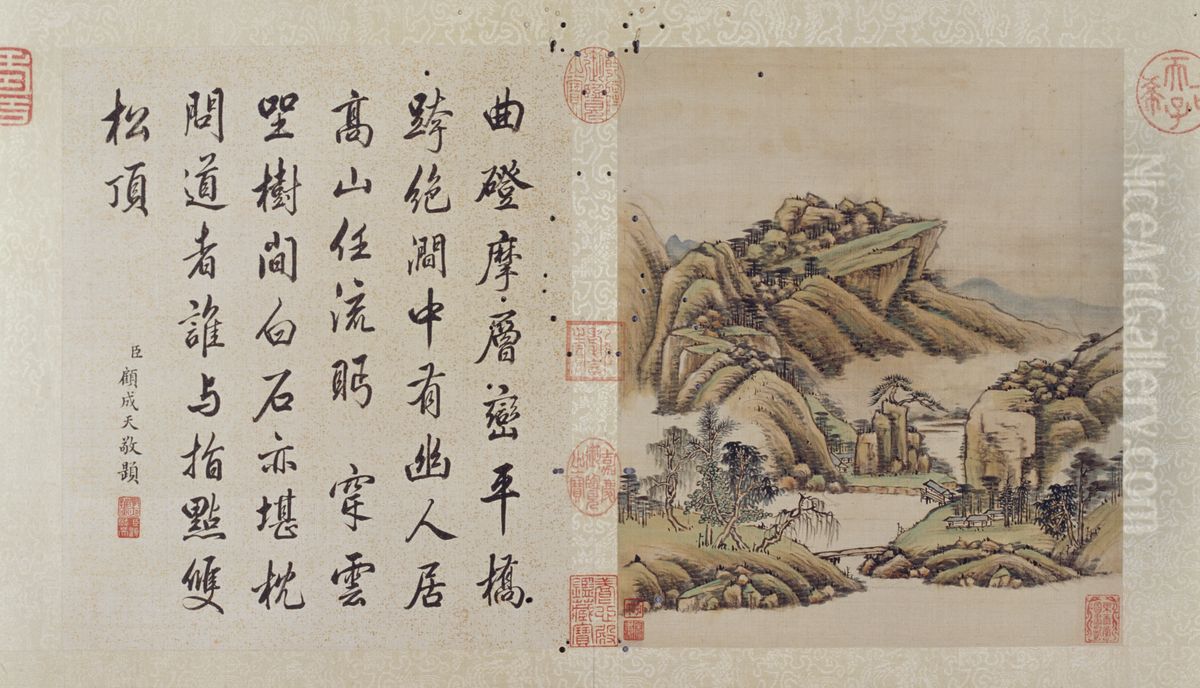 曲磴摩層巒平橋
跨絶澗中有幽人居
高山任流眄 穿雲
樹間白石亦堪枕
問道者誰与指點雙
松頂
臣顧成天敬題
嘉慶御覽之寶
養心殿鑑藏寶
NiceArtGallery.com